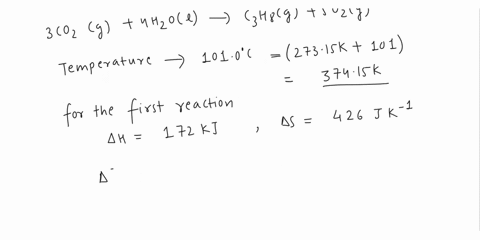 3CO2 (g) + 4H2O(l) → C3H8(g) + 5O2(g)
Temperature → 101.0°C = (273.15K + 101)
= 374.15K
for the first reaction
ΔH = 172 KJ , ΔS = 426 J K⁻¹
Δ